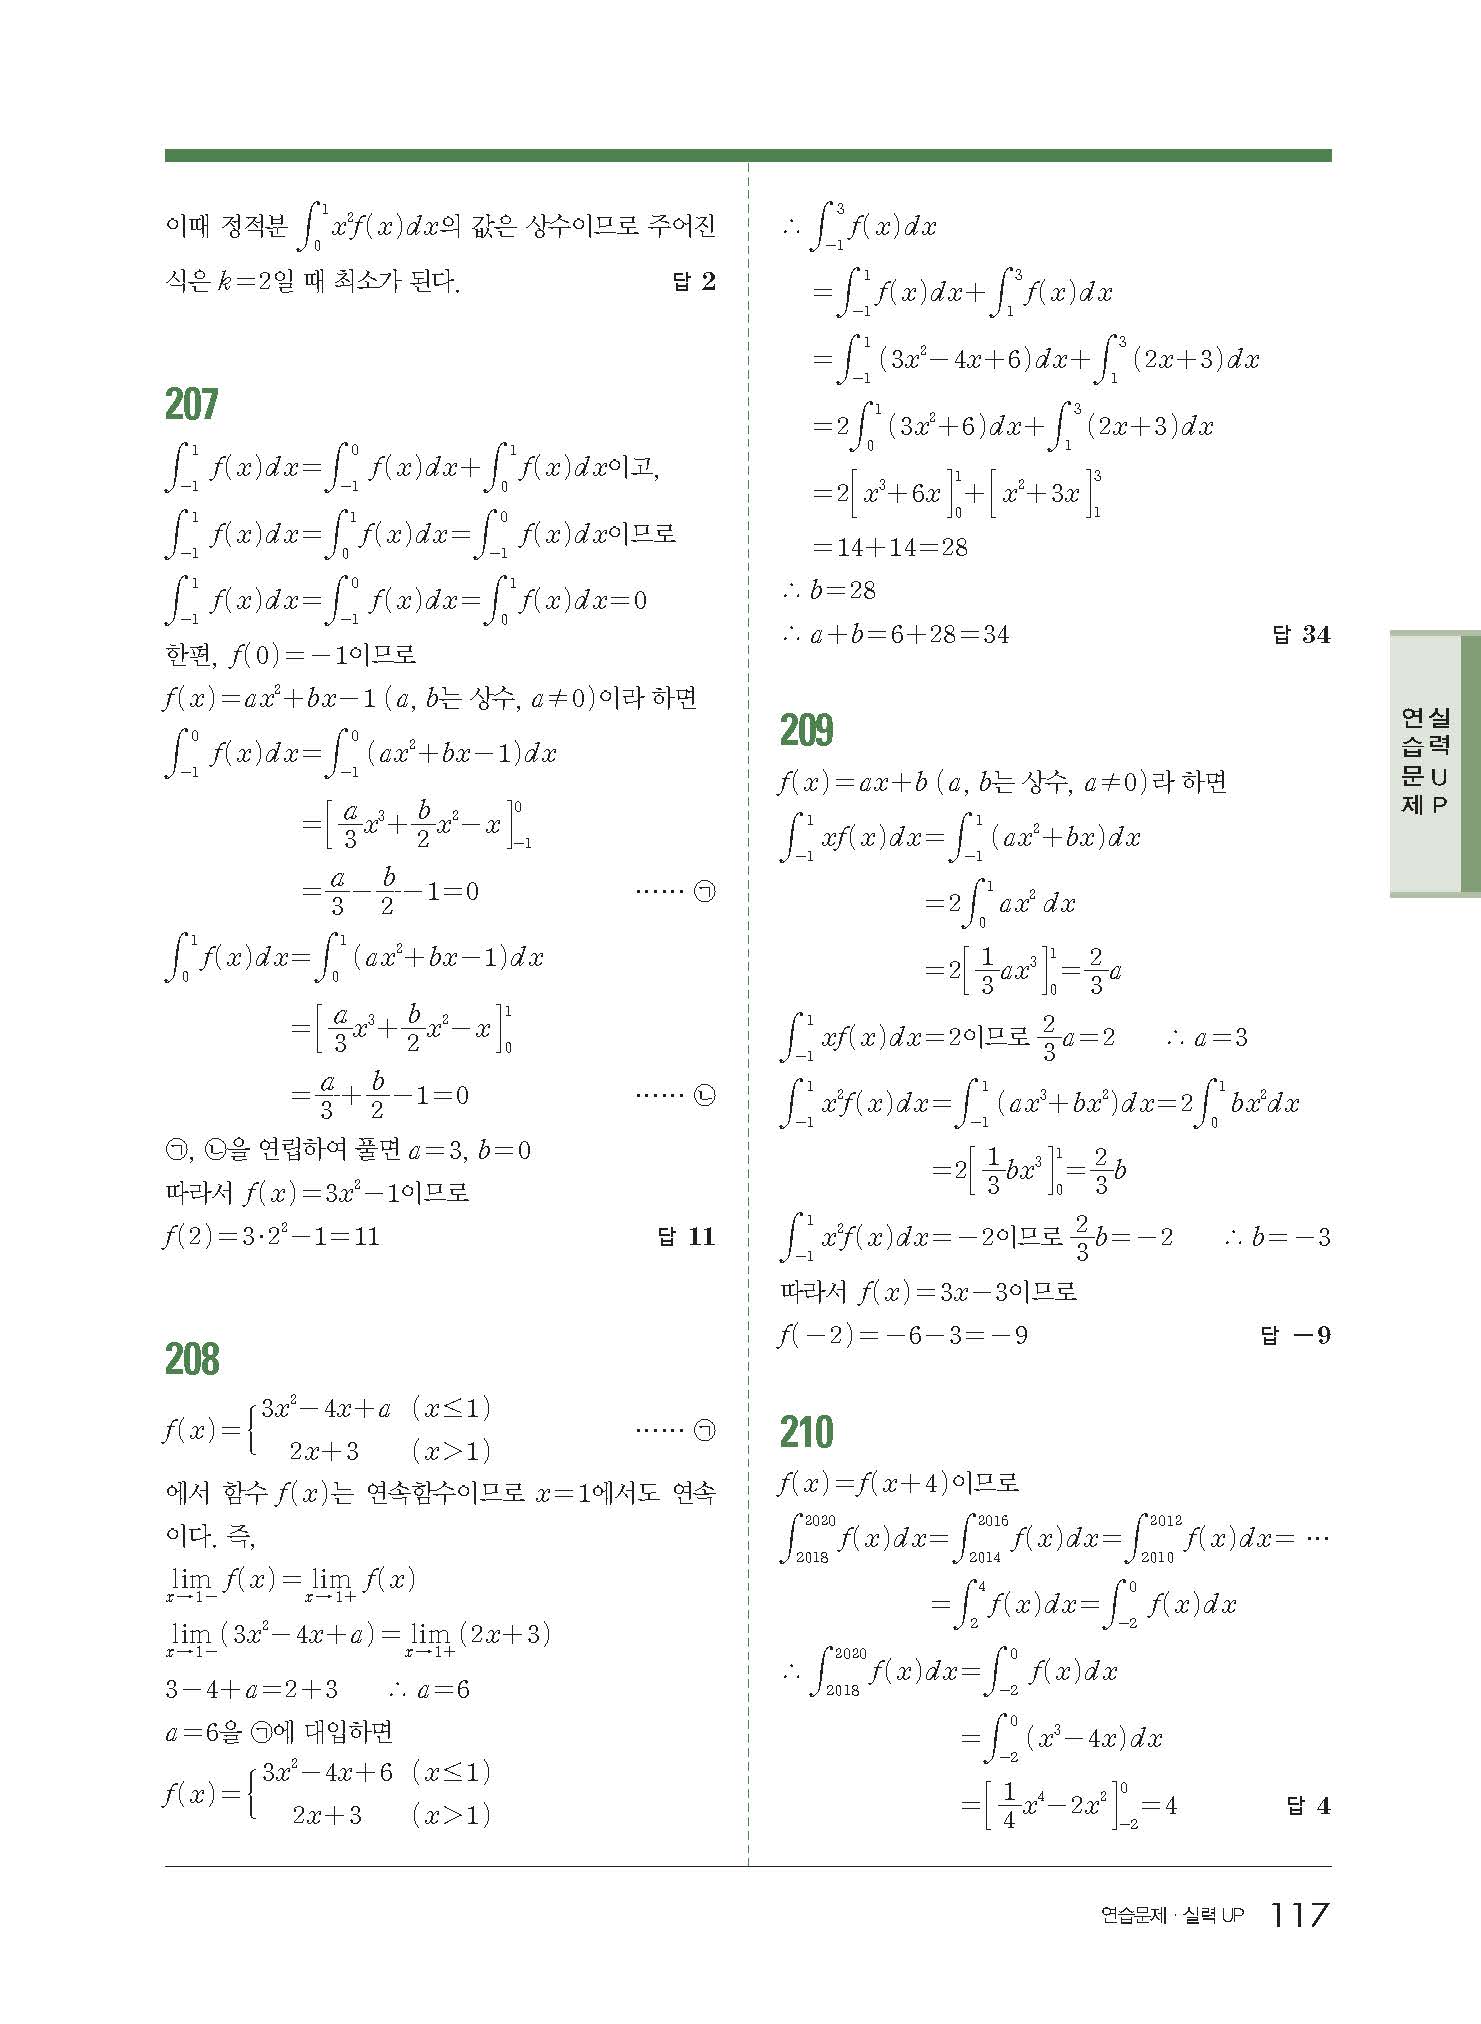 이때 정적분 ∫₀¹ x²f(x)dx의 값은 상수이므로 주어진
식은 k=2일 때 최소가 된다. 답 2
207
∫₋₁¹ f(x)dx=∫₋₁⁰ f(x)dx+∫₀¹ f(x)dx이고,
∫₋₁¹ f(x)dx=∫₀¹ f(x)dx=∫₋₁⁰ f(x)dx이므로
∫₋₁¹ f(x)dx=∫₋₁⁰ f(x)dx=∫₀¹ f(x)dx=0
한편, f(0)=-1이므로
f(x)=ax²+bx-1 (a, b는 상수, a≠0)이라 하면
∫₋₁⁰ f(x)dx=∫₋₁⁰ (ax²+bx-1)dx
=[a/3 x³+b/2 x²-x]₋₁⁰
=a/3-b/2-1=0 …… ㉠
∫₀¹ f(x)dx=∫₀¹ (ax²+bx-1)dx
=[a/3 x³+b/2 x²-x]₀¹
=a/3+b/2-1=0 …… ㉡
㉠, ㉡을 연립하여 풀면 a=3, b=0
따라서 f(x)=3x²-1이므로
f(2)=3·2²-1=11 답 11
208
f(x)={3x²-4x+a (x≤1)
2x+3 (x>1) …… ㉠
에서 함수 f(x)는 연속함수이므로 x=1에서도 연속
이다. 즉,
lim x→1- f(x)=lim x→1+ f(x)
lim x→1- (3x²-4x+a)=lim x→1+ (2x+3)
3-4+a=2+3 ∴ a=6
a=6을 ㉠에 대입하면
f(x)={3x²-4x+6 (x≤1)
2x+3 (x>1)
∴ ∫₋₁³ f(x)dx
=∫₋₁¹ f(x)dx+∫₁³ f(x)dx
=∫₋₁¹ (3x²-4x+6)dx+∫₁³ (2x+3)dx
=2∫₀¹ (3x²+6)dx+∫₁³ (2x+3)dx
=2[x³+6x]₀¹+[x²+3x]₁³
=14+14=28
∴ b=28
∴ a+b=6+28=34 답 34
209
f(x)=ax+b (a, b는 상수, a≠0)라 하면
∫₋₁¹ xf(x)dx=∫₋₁¹ (ax²+bx)dx
=2∫₀¹ ax² dx
=2[1/3 ax³]₀¹=2/3 a
∫₋₁¹ xf(x)dx=2이므로 2/3 a=2 ∴ a=3
∫₋₁¹ x²f(x)dx=∫₋₁¹ (ax³+bx²)dx=2∫₀¹ bx²dx
=2[1/3 bx³]₀¹=2/3 b
∫₋₁¹ x²f(x)dx=-2이므로 2/3 b=-2 ∴ b=-3
따라서 f(x)=3x-3이므로
f(-2)=-6-3=-9 답 -9
210
f(x)=f(x+4)이므로
∫₂₀₁₈²⁰²⁰ f(x)dx=∫₂₀₁₄²⁰¹⁶ f(x)dx=∫₂₀₁₀²⁰¹² f(x)dx= …
=∫₂⁴ f(x)dx=∫₋₂⁰ f(x)dx
∴ ∫₂₀₁₈²⁰²⁰ f(x)dx=∫₋₂⁰ f(x)dx
=∫₋₂⁰ (x³-4x)dx
=[1/4 x⁴-2x²]₋₂⁰=4 답 4
연습문제
실력 UP
연습문제 · 실력 UP 117